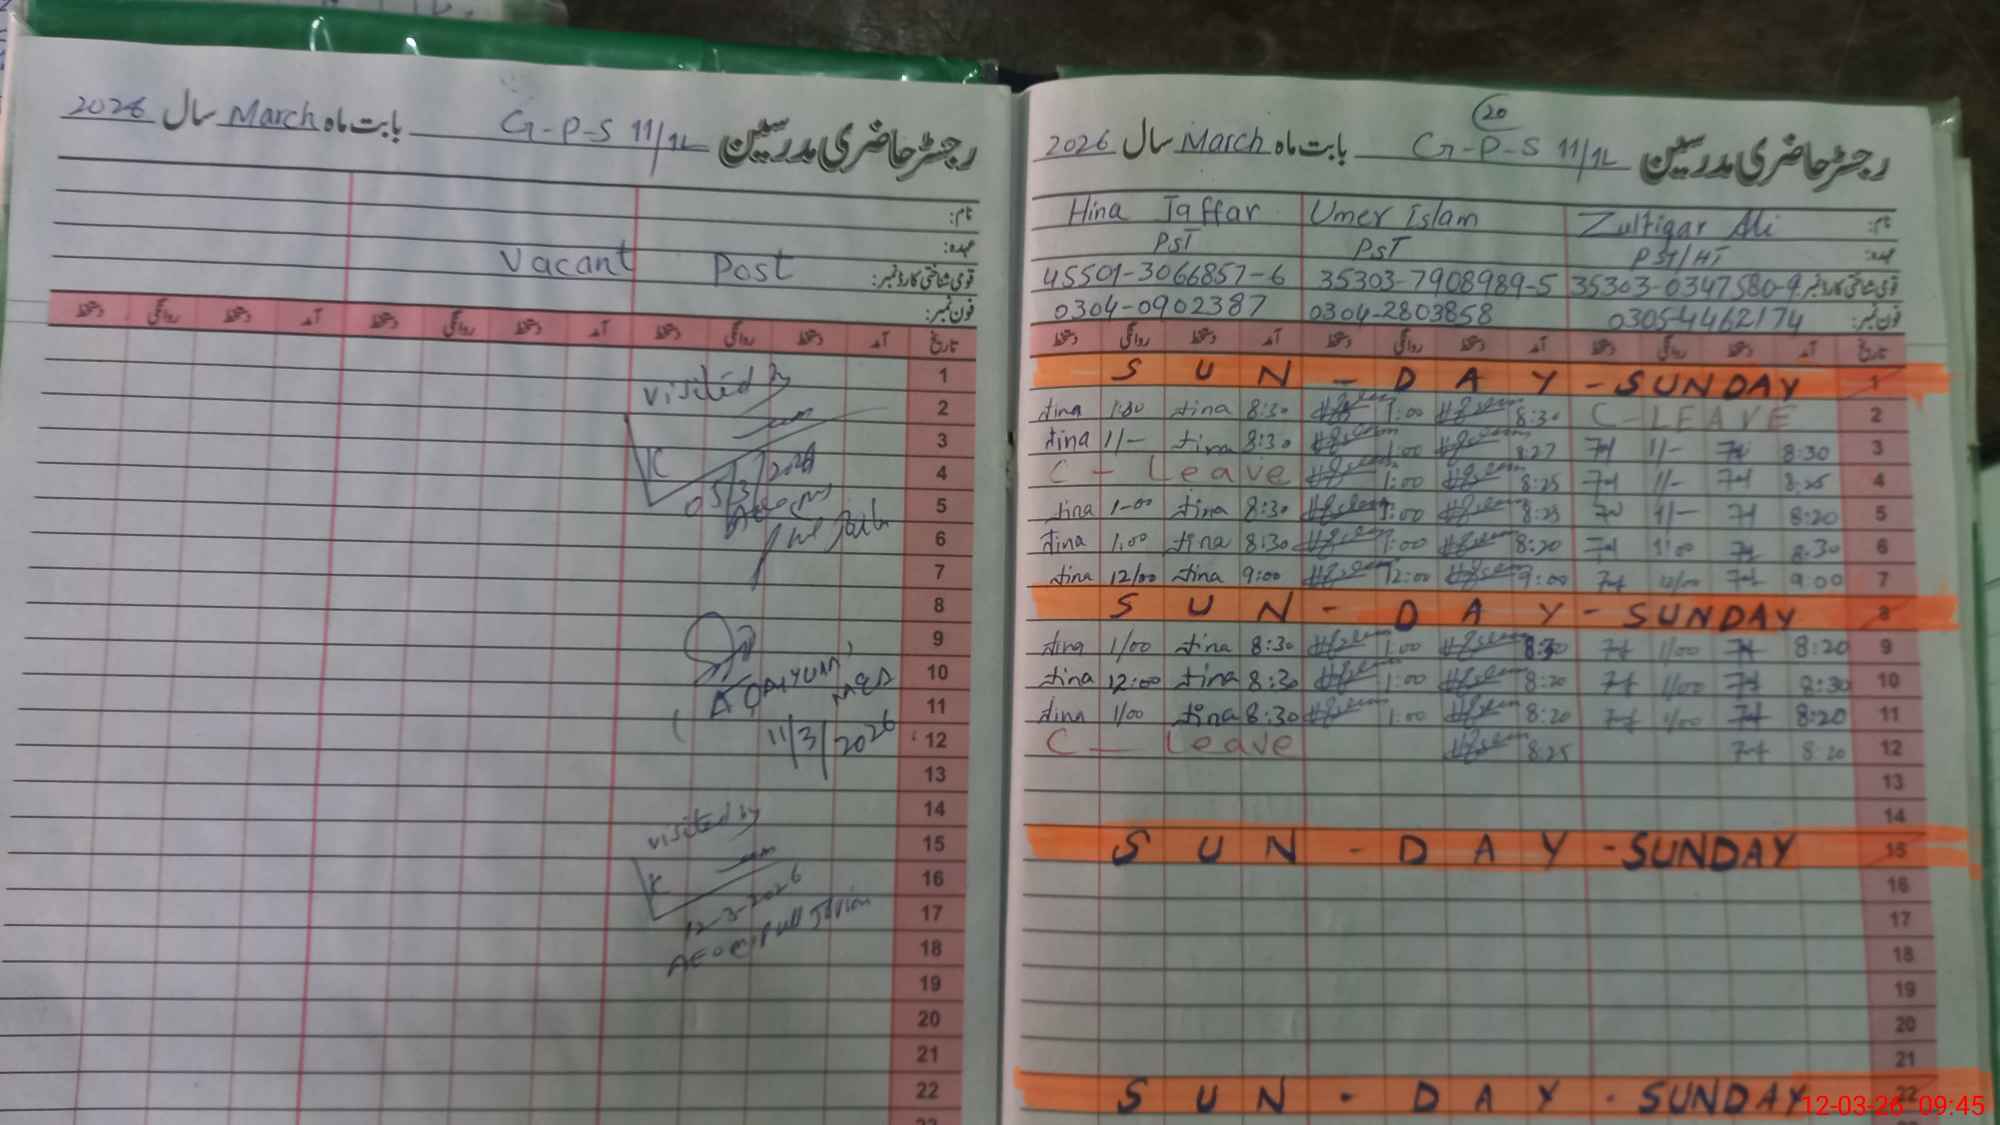 رجسٹر حاضری مدرسین G-P-S 11/1L بابت ماہ March سال 2026
نام:
عہدہ:
قومی شناختی کارڈ نمبر: Vacant Post
فون نمبر:
تاریخ آمد دستخط روانگی دستخط آمد دستخط روانگی دستخط آمد دستخط روانگی دستخط
1
visited by
2
3
4
05/3/2026
5
6
7
8
9
10
11
11/3/2026
12
13
14
visited by
15
16
12-3-2026
17
18
19
20
21
22
20
رجسٹر حاضری مدرسین G-P-S 11/1L بابت ماہ March سال 2026
نام: Hina Jaffar Umer Islam Zulfiqar Ali
عہدہ: PST PST PST/HT
45501-3066857-6 35303-7908989-5 35303-0347580-9
فون نمبر: 0304-0902387 0304-2803858 0305-4462174
تاریخ آمد دستخط روانگی دستخط آمد دستخط روانگی دستخط آمد دستخط روانگی دستخط
S U N - D A Y - SUNDAY 1
Hina 1:00 Hina 8:30 1:00 8:30 C-LEAVE 2
Hina 1/- Hina 8:30 1:00 8:27 1/- 8:30 3
C - Leave 1:00 8:25 1/- 8:25 4
Hina 1-00 Hina 8:30 1:00 8:25 1/- 8:20 5
Hina 1:00 Hina 8:30 1:00 8:20 1:00 8:30 6
Hina 12/00 Hina 9:00 12:00 9:00 12/00 9:00 7
S U N - D A Y - SUNDAY 8
Hina 1/00 Hina 8:30 1:00 8:30 1/00 8:20 9
Hina 12:00 Hina 8:30 1:00 8:20 1/00 8:30 10
Hina 1/00 Hina 8:30 1:00 8:20 1/00 8:20 11
C - Leave 8:25 8:20 12
13
14
S U N - D A Y - SUNDAY 15
16
17
18
19
20
21
S U N - D A Y - SUNDAY 22
12-03-26 09:45